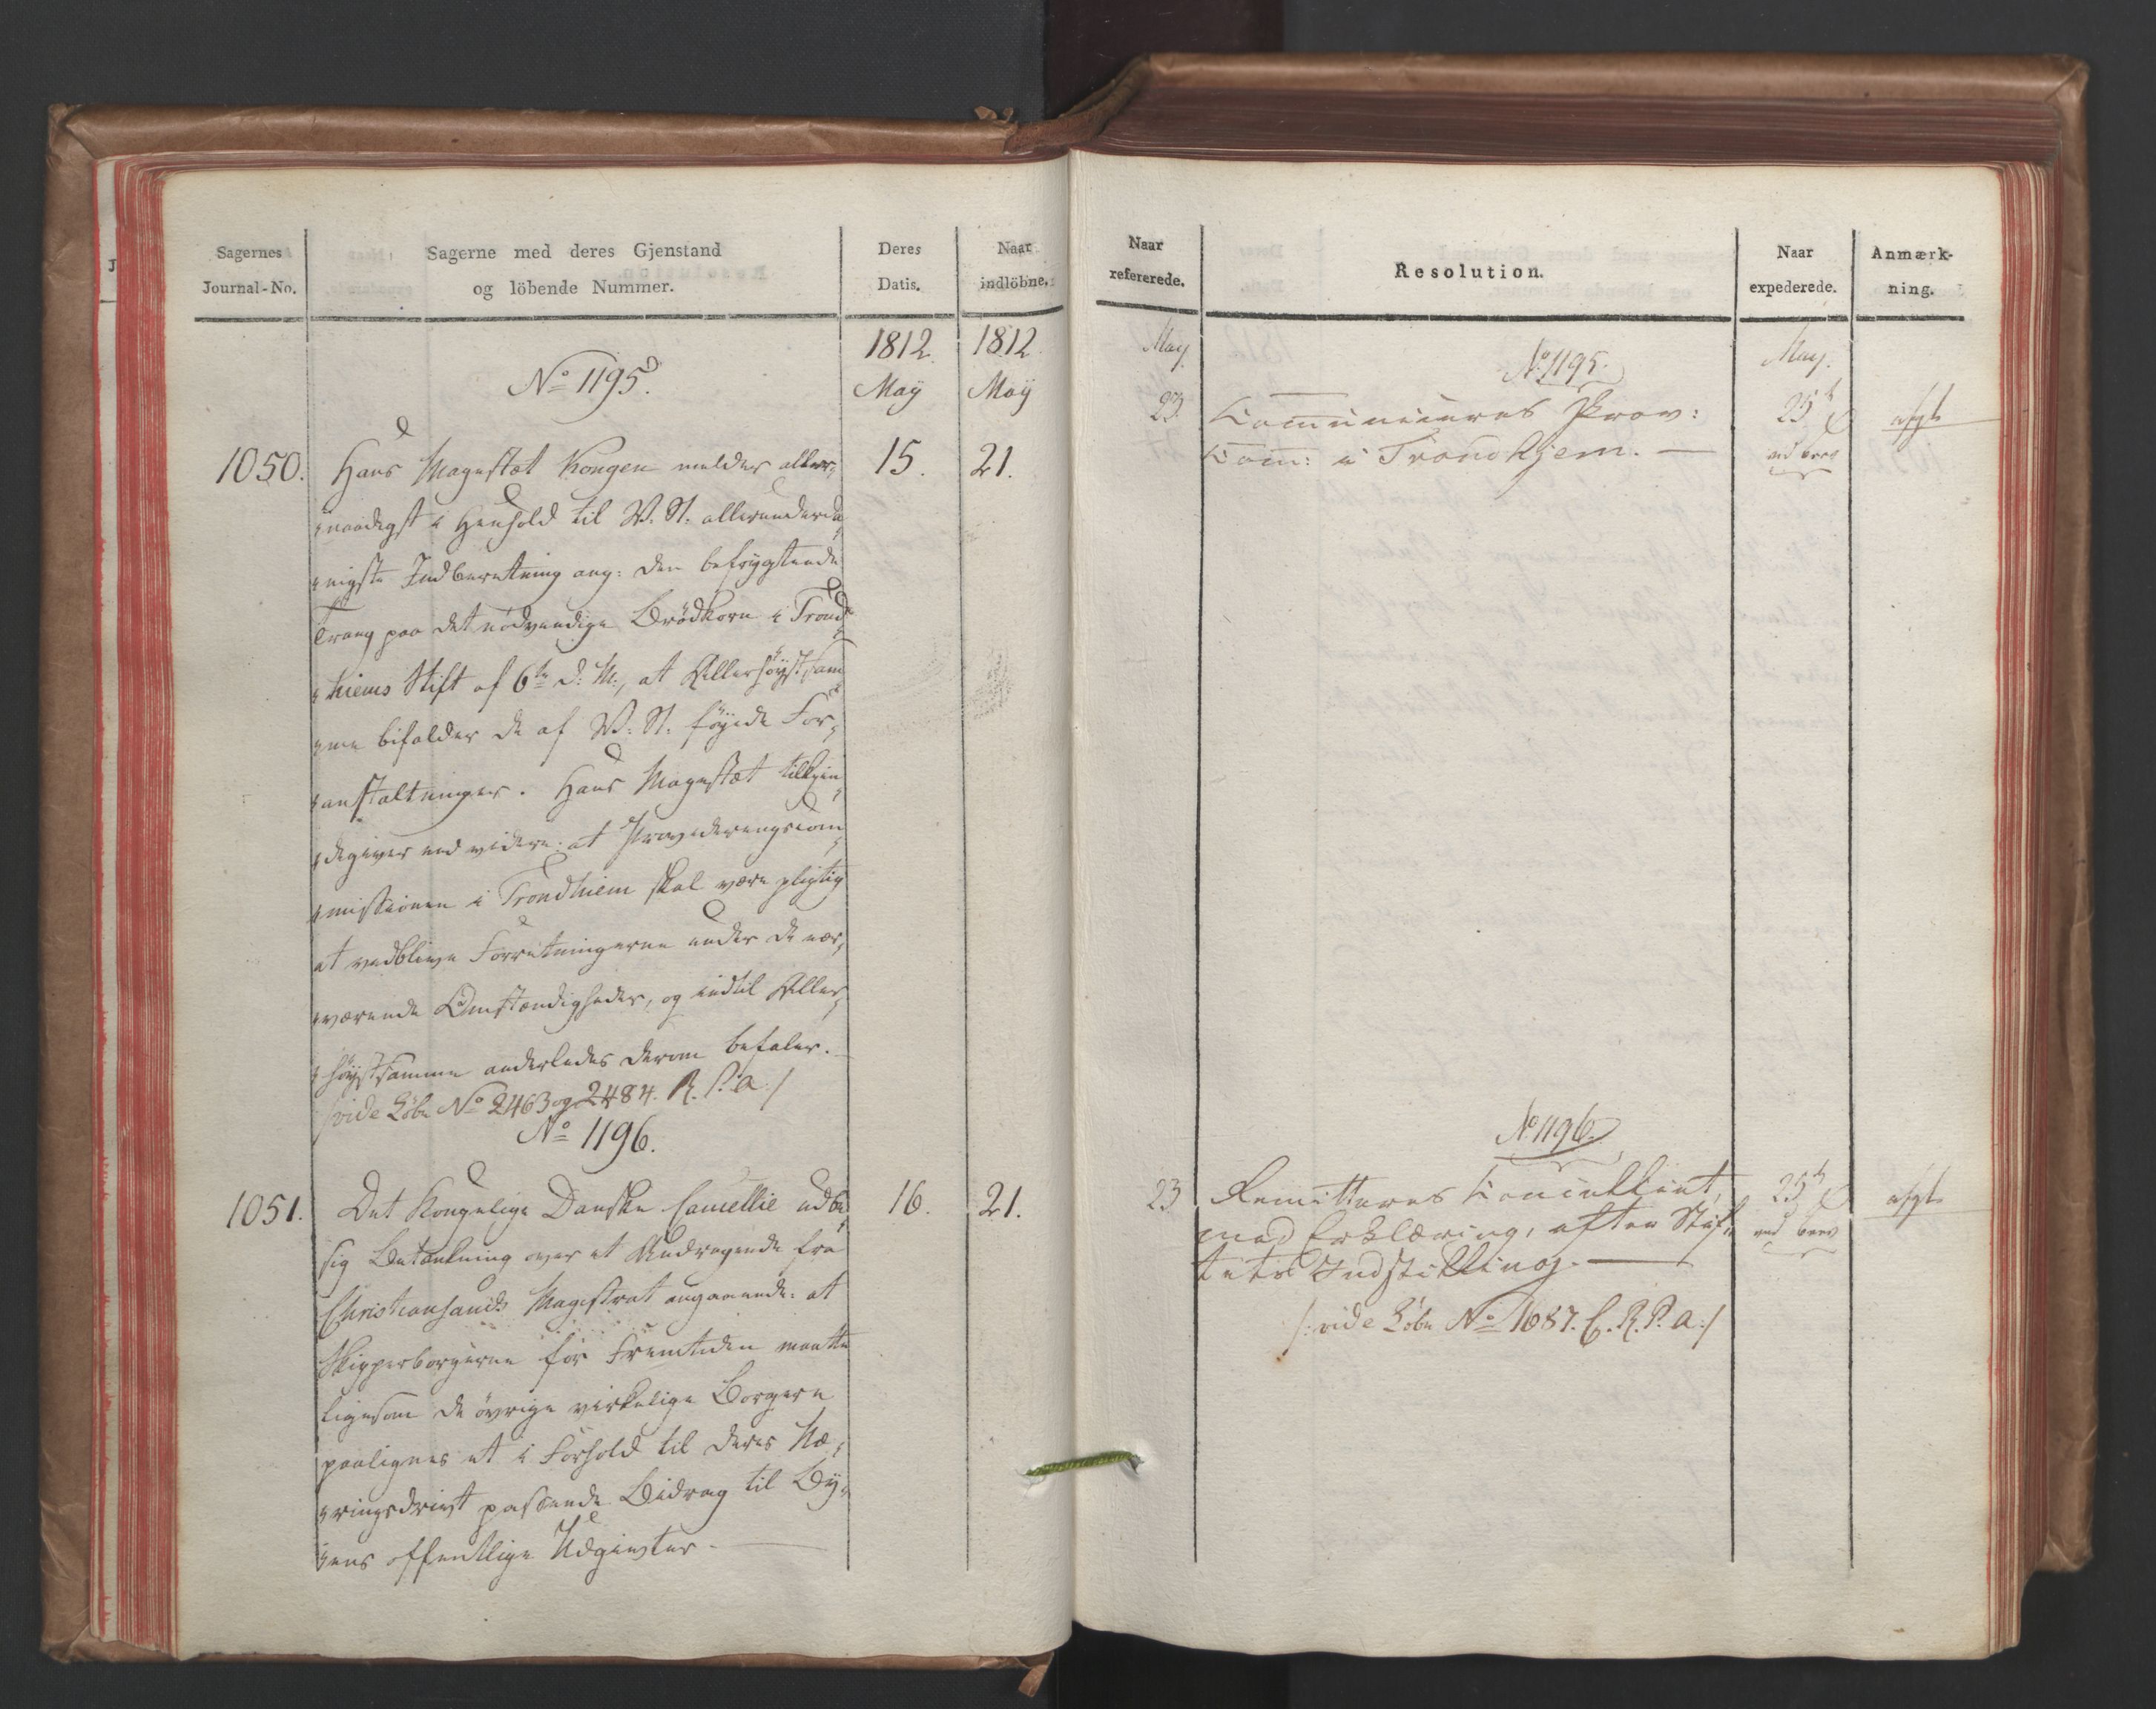 Sagernes
Journal-No.
Sagerne med deres Gjenstand
og löbende Nummer.
Deres
Datis.
Naar
indlöbne.
1812. 1812.
May May
No 1195.
1050. Hans Magestæt Kongen melder aller¬ 15. 21.
naadigst i Henhold til V. St. allerunderda¬
nigste Indberetning ang: den befrygtende
Trang paa det nödvendige Brödkorn i Trond¬
hiems Stift af 6te d: M:, at Allerhöystsam¬
me bifalder de af V: St. föyede For¬
anstaltninger. Hans Magestæt tilkjen¬
degiver end videre: at Provideringscom¬
missionen i Trondhiem skal være pligtig
at vedblive Forretningerne under de nær¬
værende Omstændigheder, og indtil Aller¬
höystsamme anderledes derom befaler.
/vide Löbe No 2463 og 2484. R. P. a:/
No 1196.
1051. Det Kongelige Danske Cancellie udbe¬ 16. 21.
sig Betænkning over et Andragende fra
Christiansands Magistrat angaaende: at
Skipperborgerne for Fremtiden maatte
ligesom de övrige virkelige Borgere
paalignes et i Forhold til deres Næ¬
ringsdrivt passende Bidrag til By¬
ens offentlige Udgivter.
Naar
refererede.
Resolution.
Naar
expederede.
Anmærk-
ning.
May. May.
No 1195.
23. Communiceres Prov: 25 afgt
Com: i Trondhjem. ved brev
No 1196.
23 Remitteres Cancelliet, 25 afgt
med Erklæring, efter Stif¬ ved brev
tets Indstilling.
/:vide Löbe No 1687. C. R. P. a:/